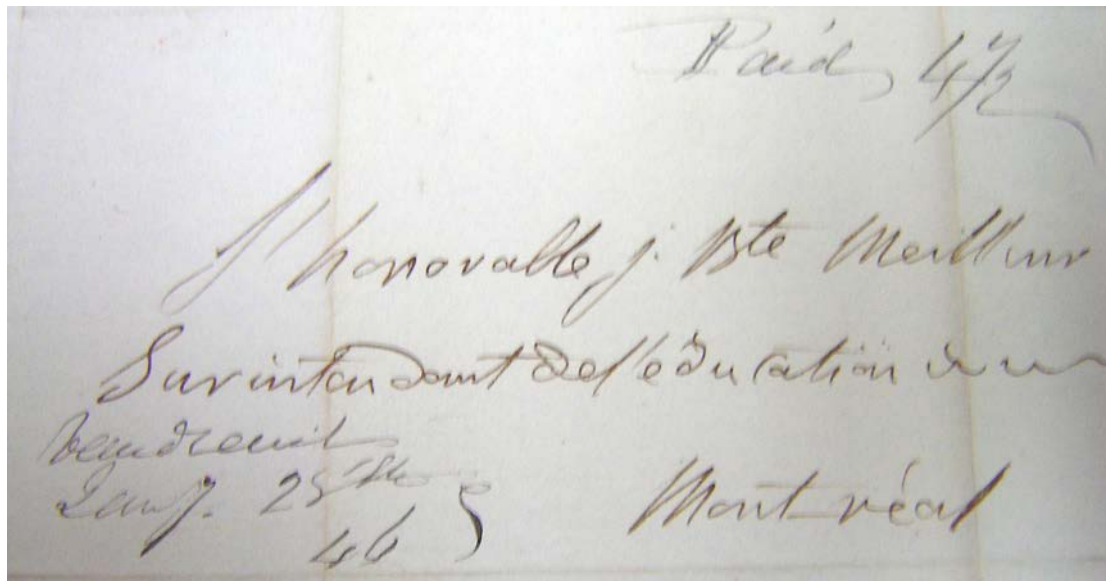 Paid 4½
L'honorable j. Bte Meilleur
Surintendant de l'éducation
Vaudreuil
Janry. 25th
46
Montréal